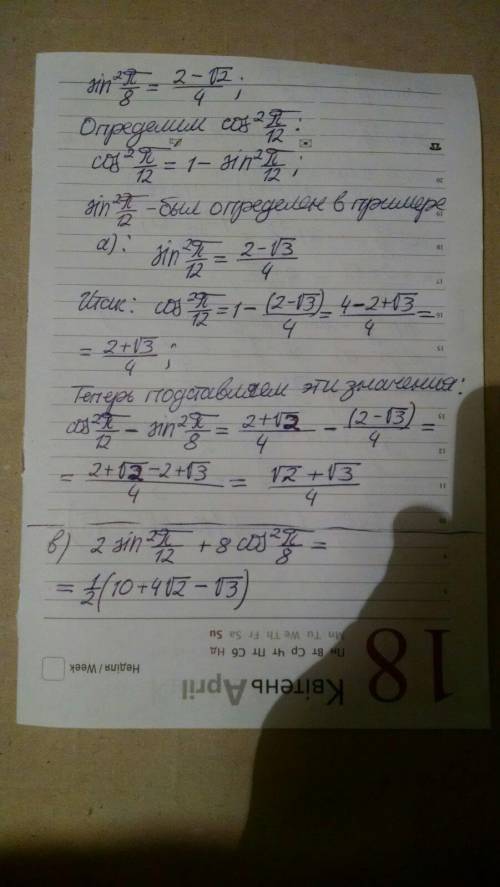 sin²π/8 = (2-√2)/4 ;
Определим cos²π/12 :
cos²π/12 = 1 - sin²π/12 ;
sin²π/12 - был определен в примере
а): sin²π/12 = (2-√3)/4
Итак: cos²π/12 = 1 - (2-√3)/4 = (4-2+√3)/4 =
= (2+√3)/4 ;
Теперь подставляем эти значения:
cos²π/12 - sin²π/8 = (2+√2)/4 - (2-√3)/4 =
= (2+√2-2+√3)/4 = (√2+√3)/4
в) 2 sin²π/12 + 8 cos²π/8 =
= 1/2(10+4√2-√3)
18
Mn Tu We Th Fr Sa Su
Пн Вт Ср Чт Пт Сб Нд
Квітень April
Неділя / Week